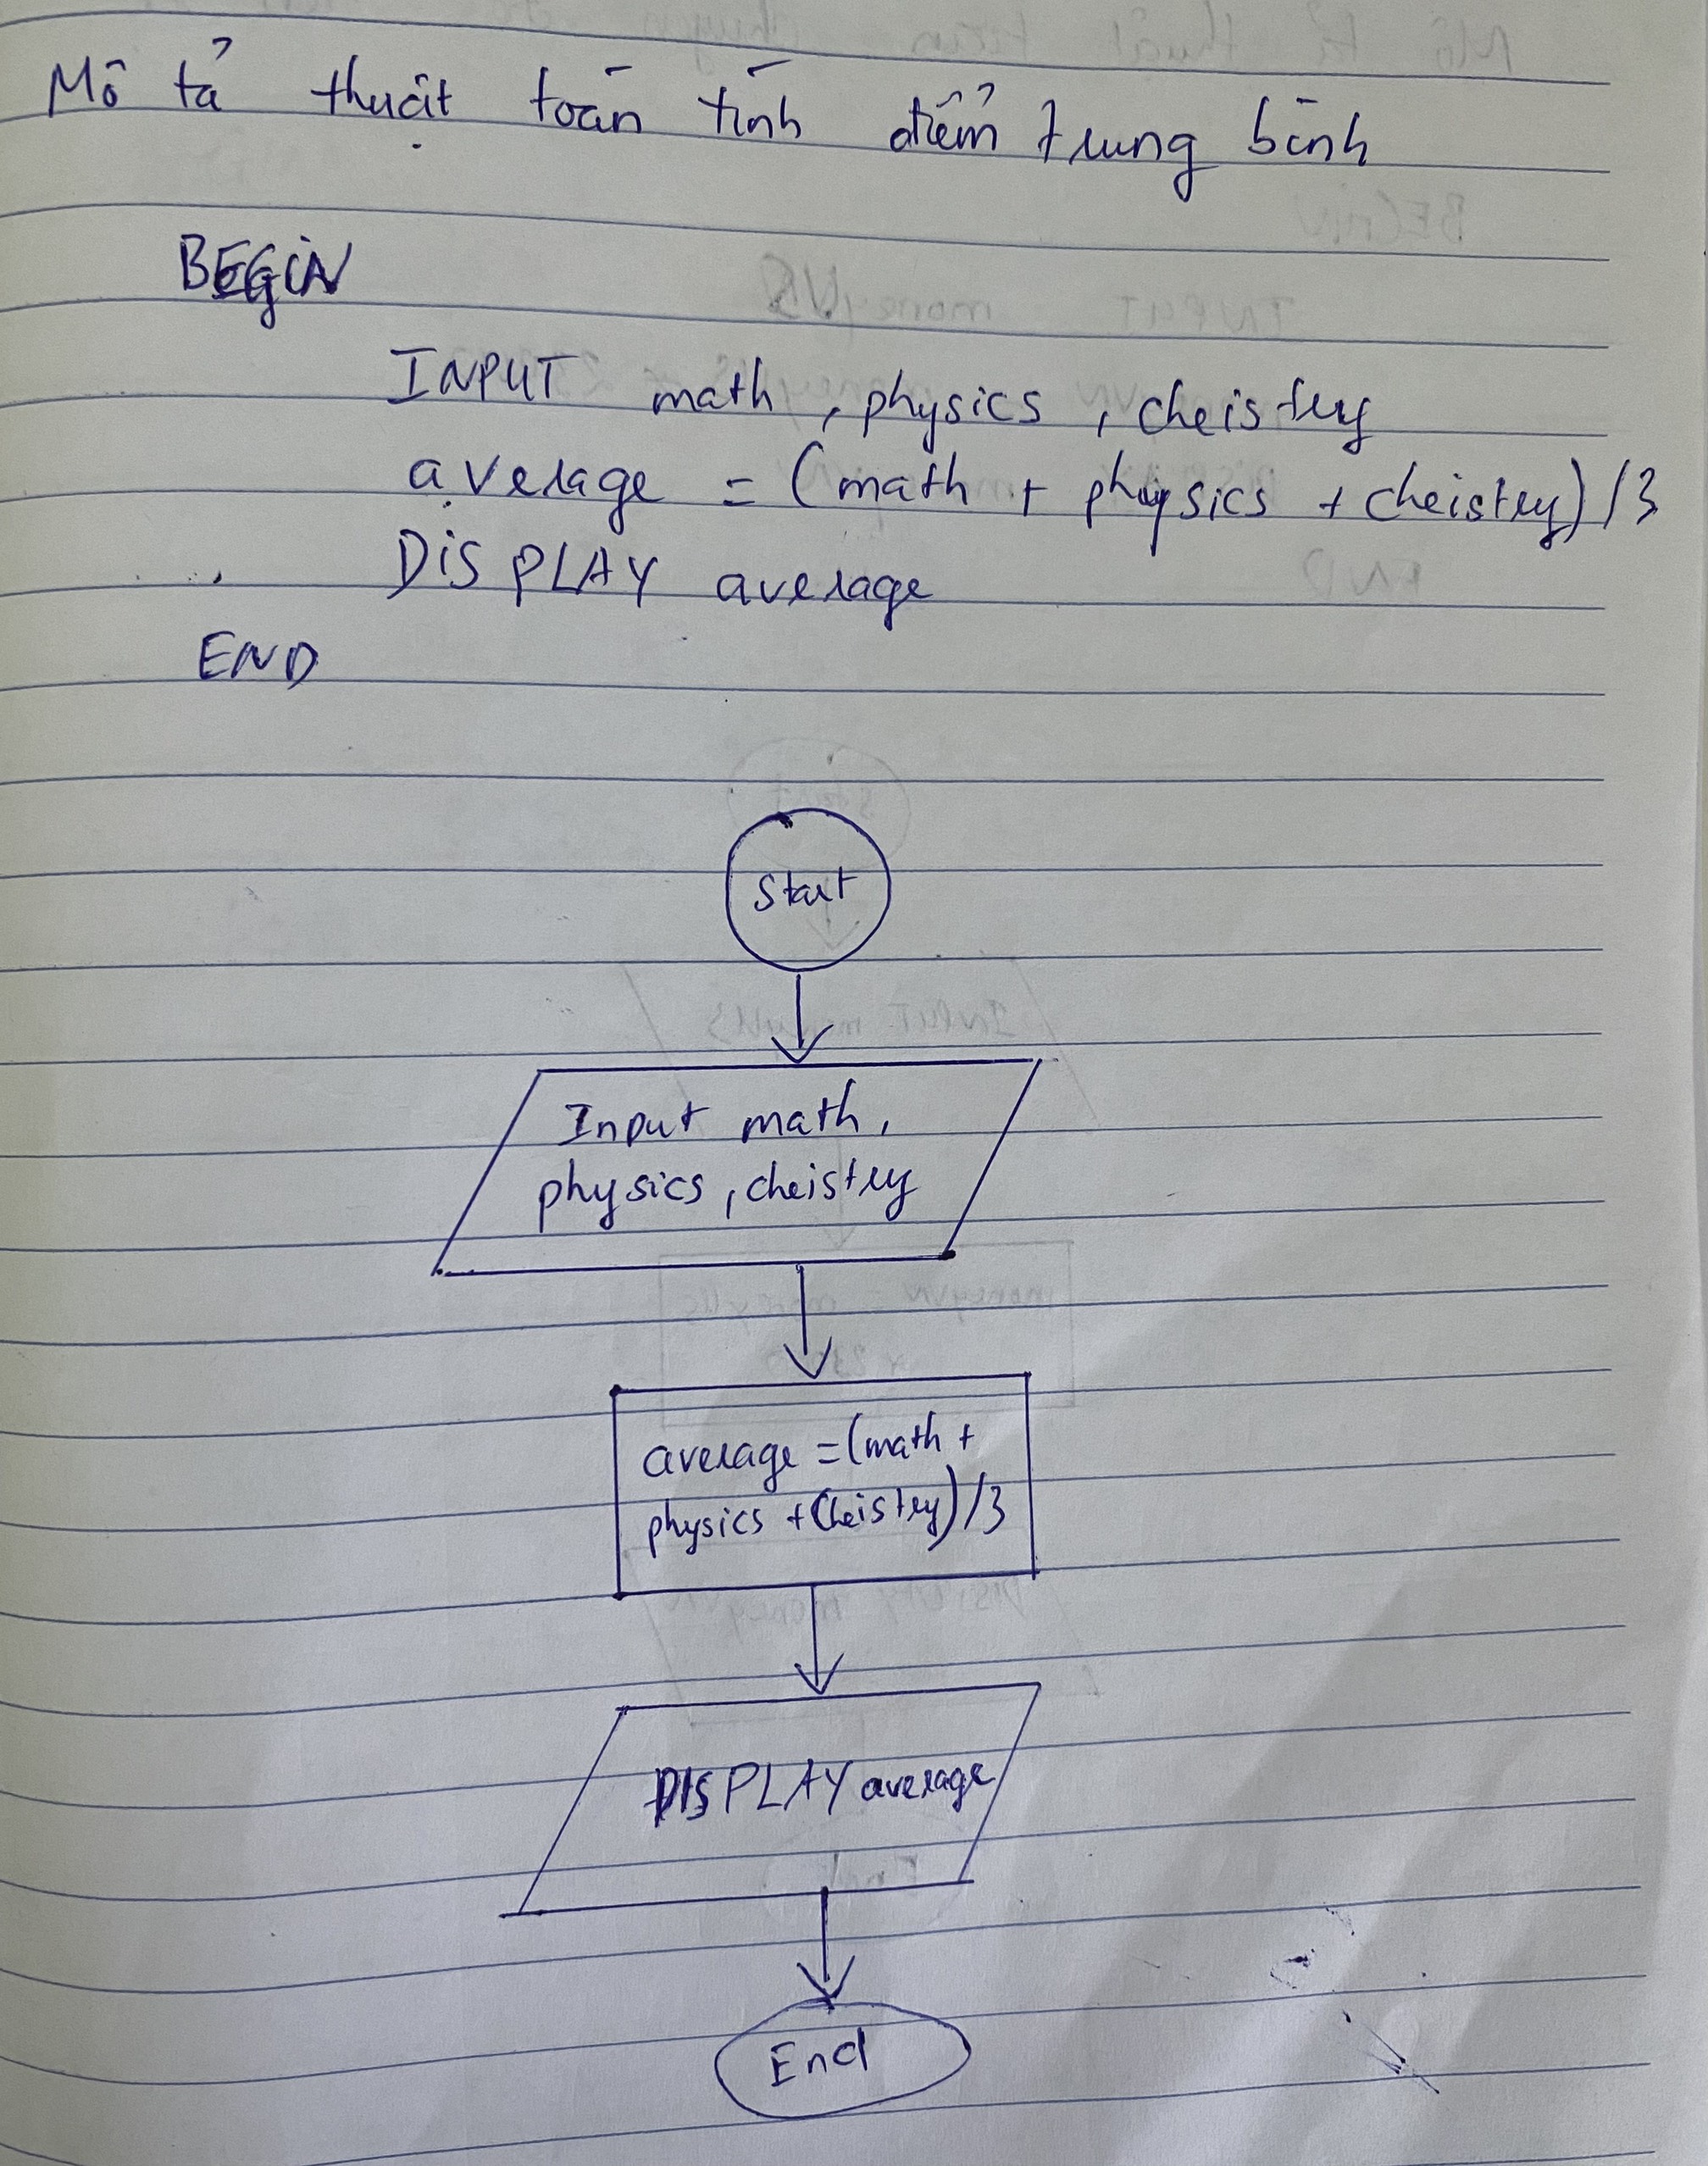 Mô tả thuật toán tính điểm trung bình
BEGIN
INPUT math, physics, cheistry
average = (math + physics + cheistry)/3
DISPLAY average
END
Start
Input math,
physics, cheistry
average = (math +
physics + cheistry)/3
DISPLAY average
End